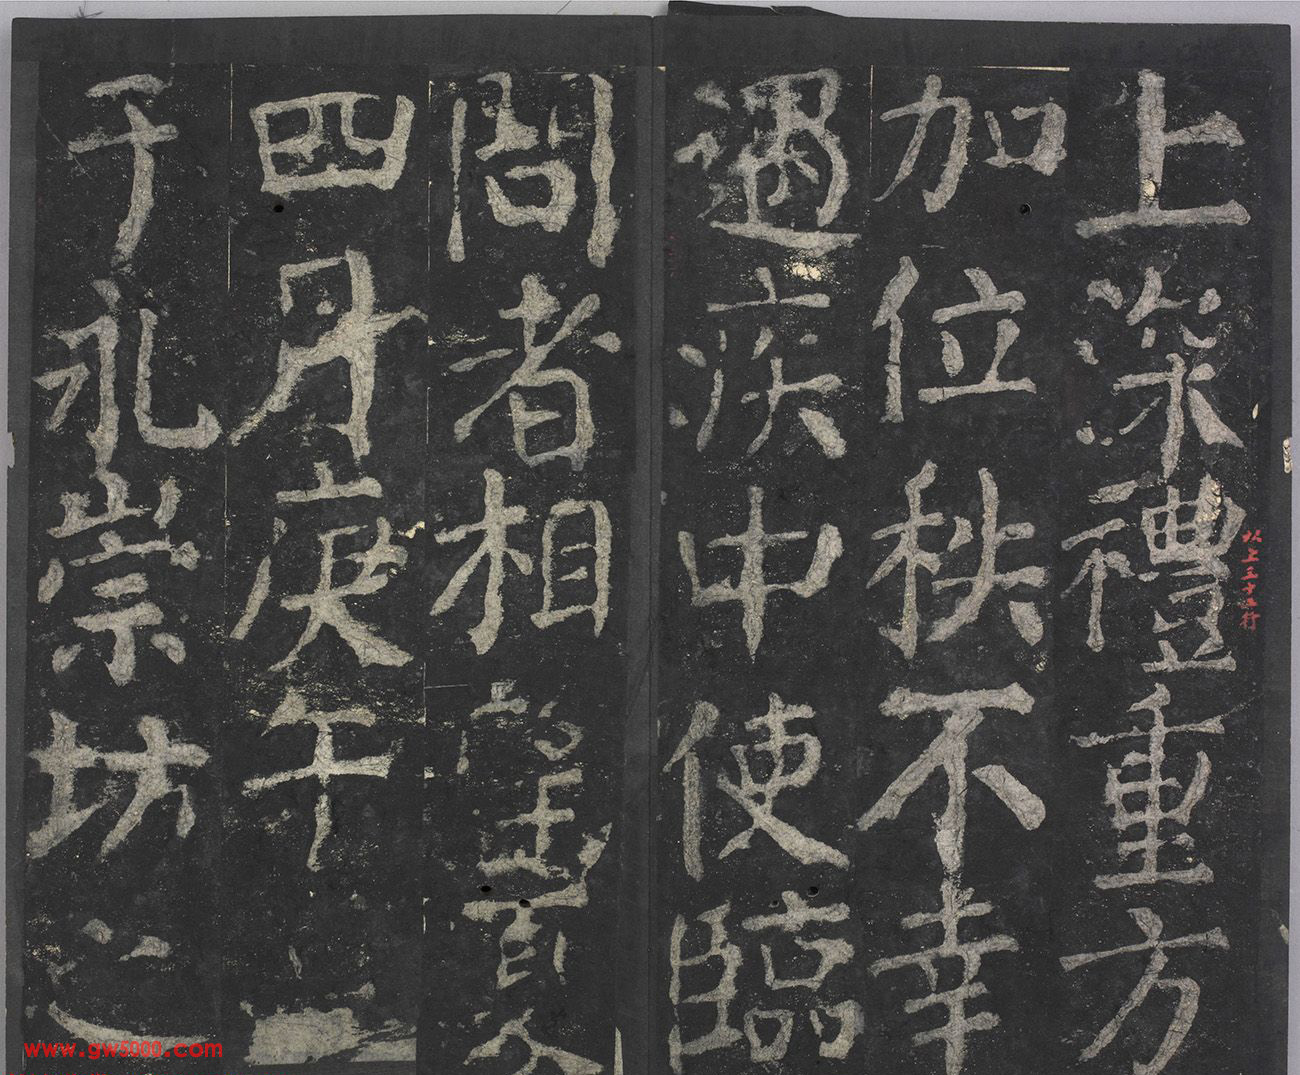 上深禮重方
加位秩不幸
遇疾中使臨
問者相望
四月庚午
于永崇坊之
以上三十五行
www.gw5000.com